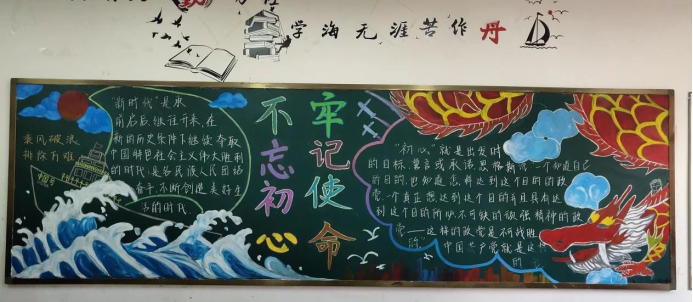 学海无涯苦作舟
不忘初心
牢记使命
乘风破浪
排除万难
中国号
"新时代"是承
前启后继往开来、在
新的历史条件下继续夺取
中国特色社会主义伟大胜利
的时代,是各民族人民团结
奋斗、不断创造美好生
活的时代.
"初心"就是出发时
的目标、誓言或承诺恩格斯说:一个知道自己
的目的,也知道怎样达到这个目的的政
党,一个真正想达到这个目的并且具有达
到这个目的所必不可缺的顽强精神的政
党——这样的政党是不可战胜
的"中国共产党就是这样
的